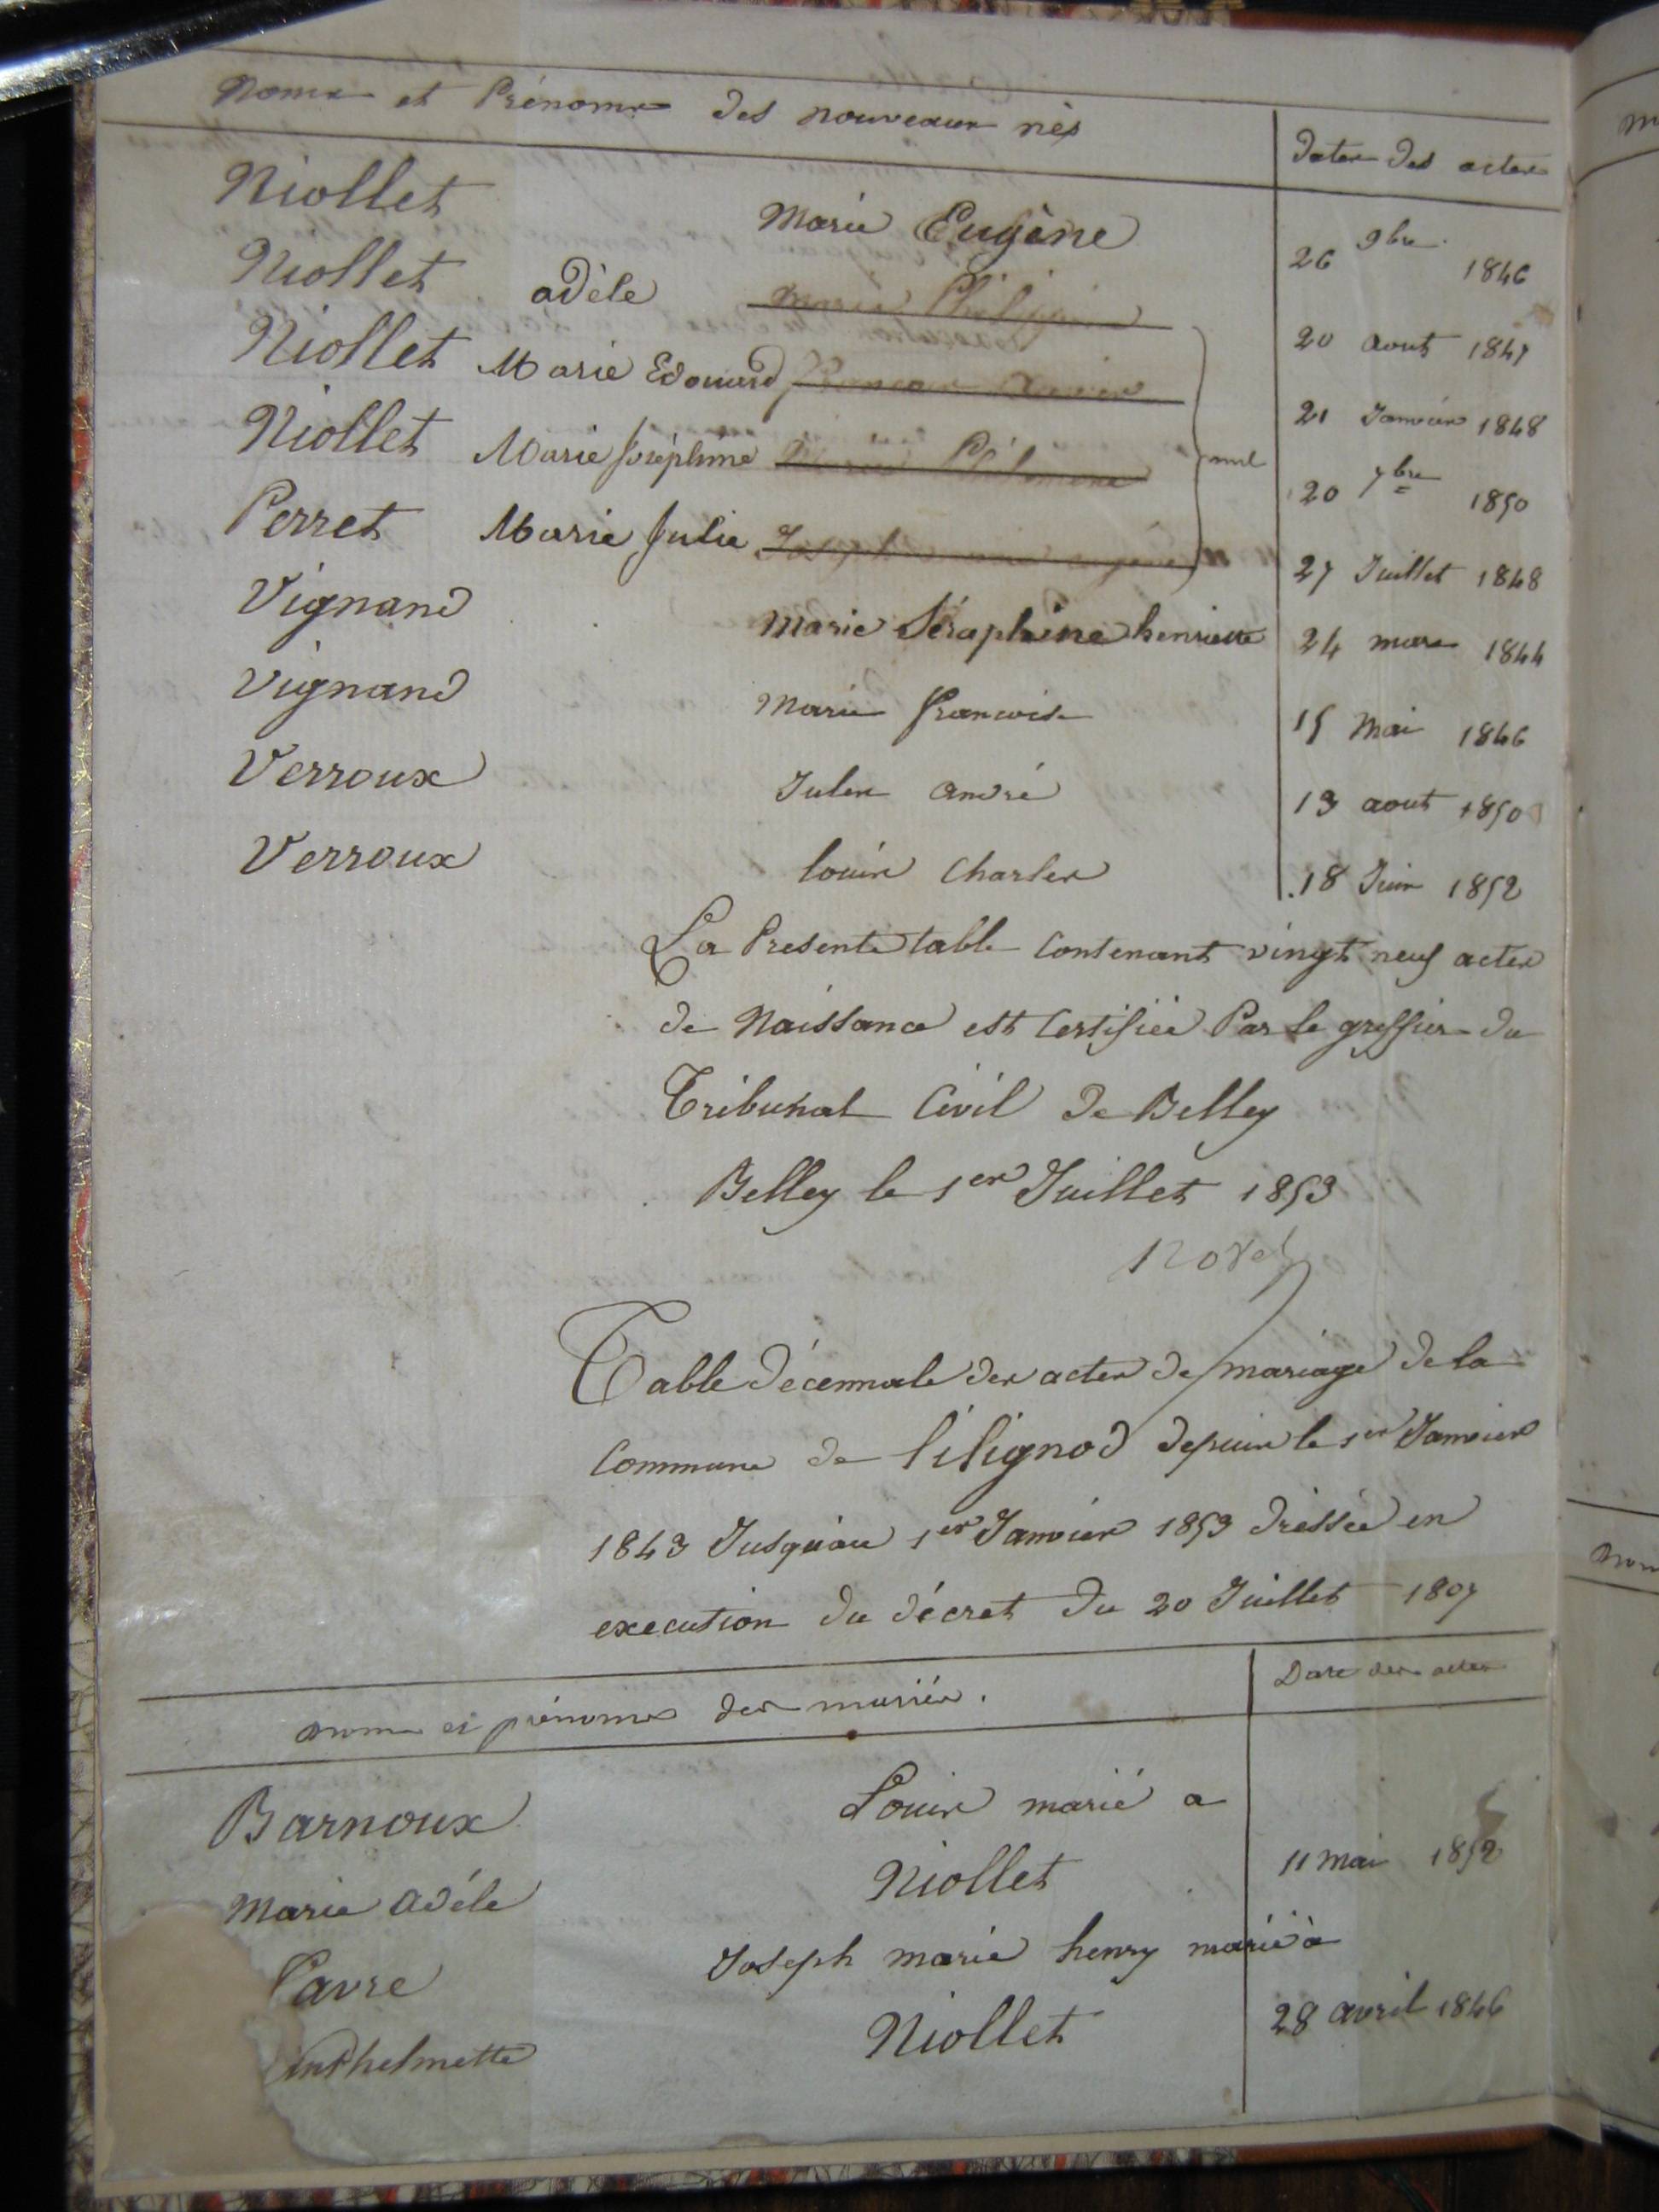 Noms et Prénoms des nouveaux nés
Dates des actes
Niollet Marie Eugène 26 9bre 1846
Niollet adèle Marie 20 aout 1847
Niollet Marie Edouard 21 Janvier 1848
Niollet Marie Joséphine Marie Philomène nul 20 7bre 1850
Perret Marie Julie Joseph 27 Juillet 1848
Vignand Marie Séraphine henriette 24 mars 1844
Vignand Marie francoise 15 Mai 1846
Verroux Jules andré 13 aout 1850
Verroux louis Charles 18 Juin 1852
La Presente table Contenant vingt neuf actes
de Naissance est Certifiée Par le greffier du
Tribunal Civil de Belley
Belley le 1er Juillet 1853
Table décennale des actes de mariage de la
Commune de lilignod depuis le 1er Janvier
1843 Jusquau 1er Janvier 1853 dressée en
execution du décret du 20 Juillet 1807
noms et prénoms des mariés.
Date des actes
Barnoux Louis marié a
Marie adéle Niollet 11 mai 1852
Joseph marie henry marié à
anthelmette Niollet 28 avril 1846